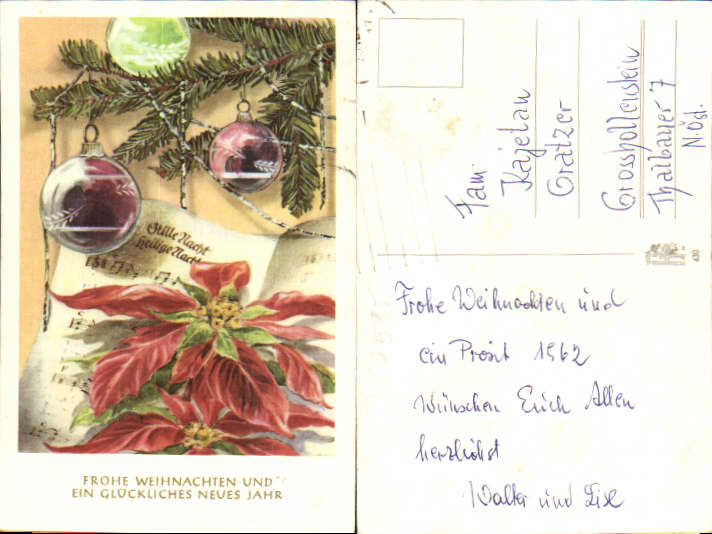 Stille Nacht
heilige Nacht
FROHE WEIHNACHTEN UND
EIN GLÜCKLICHES NEUES JAHR
Fam.
Kajetan
Gratzer
Grosshollenstein
Thalbauer 7
N.Öst.
430
Frohe Weihnachten und
ein Prosit 1962
wünschen Euch Allen
herzlichst
Walter und Lise